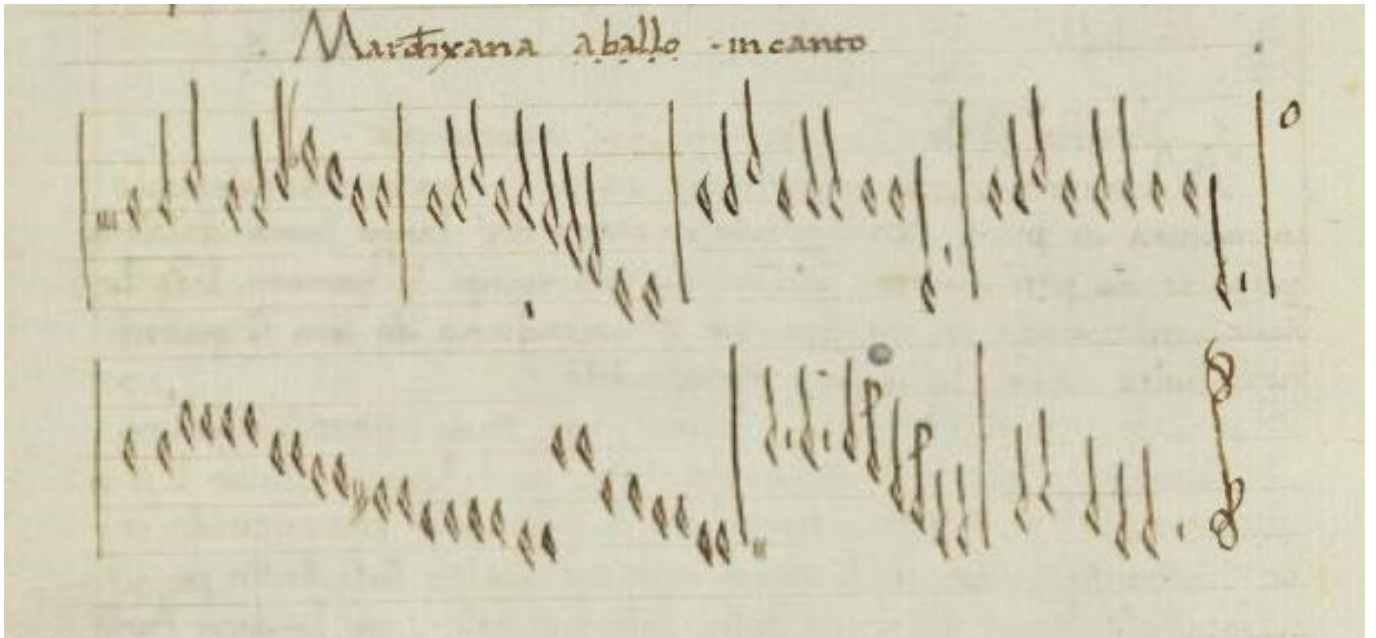 Marchixana aballo in canto